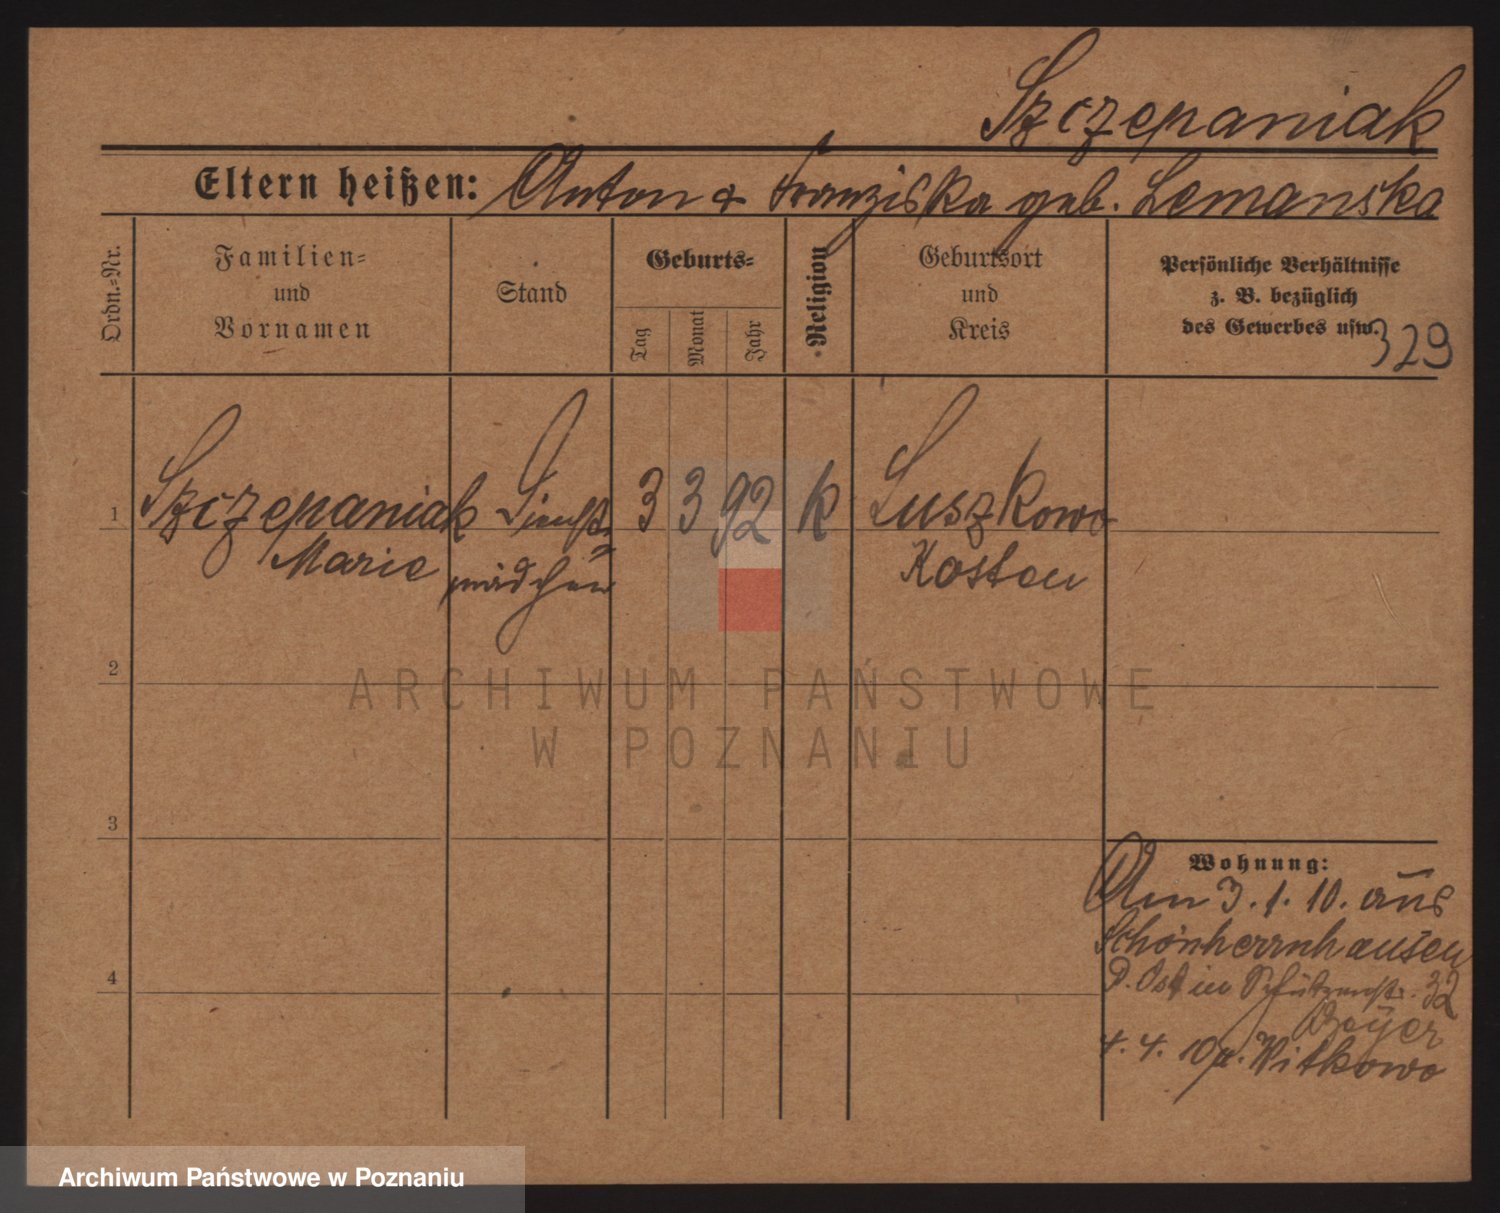 Szczepaniak
Eltern heißen: Anton & Franziska geb. Lemanska
Ordn.-Nr.
Familien-
und
Vornamen
Stand
Geburts-
Tag
Monat
Jahr
Religion
Geburtsort
und
Kreis
Persönliche Verhältnisse
z. B. bezüglich
des Gewerbes usw.
329
1 Szczepaniak Dienst- 3 3 92 k Luszkowo
Marie mädchen Kosten
2
ARCHIWUM PAŃSTWOWE
W POZNANIU
3
Wohnung:
Am 3.1.10. aus
Schönherrnhausen
P. Ost in Schützenstr. 32
Beyer
4
4.4.10 n. Witkowo
Archiwum Państwowe w Poznaniu